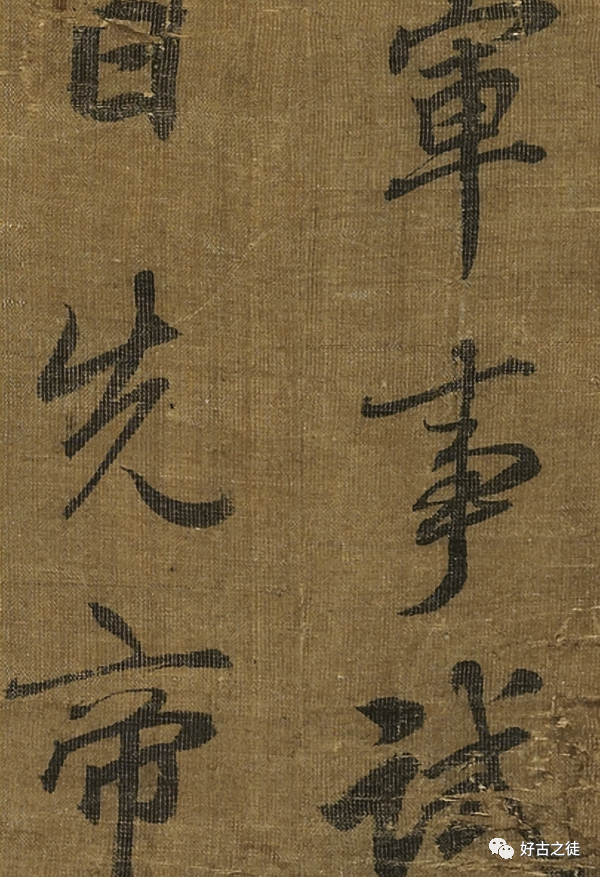 軍事試
先帝
好古之徒